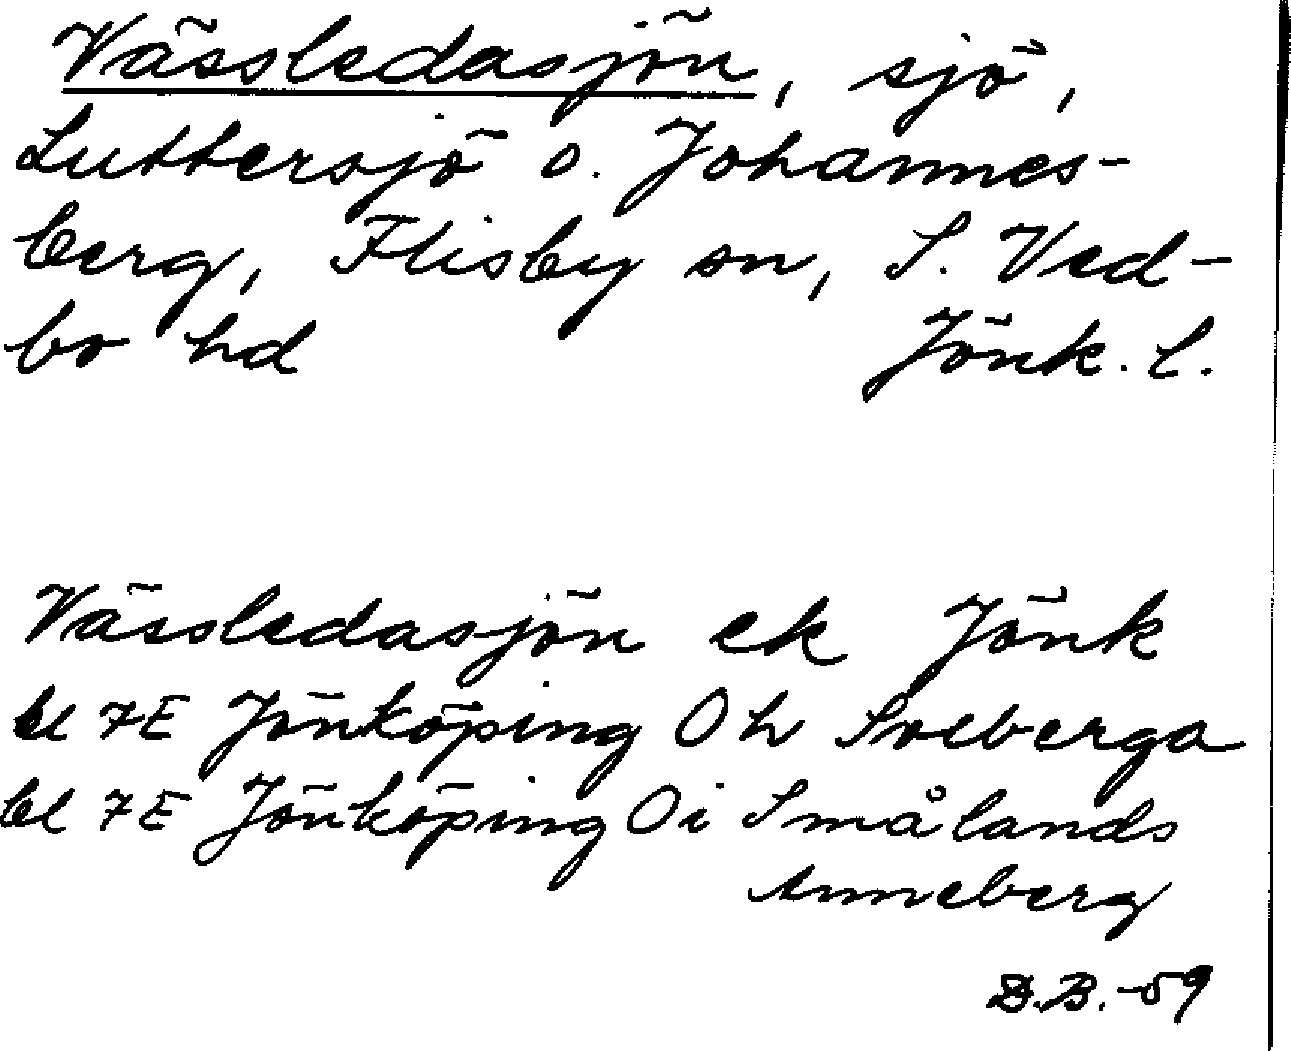 Vässledasjön, sjö,
Luttersjö o. Johannes-
berg, Flisby sn, S. Ved-
bo hd Jönk. l.
Vässledasjön ek Jönk
bl 7E Jönköping Oh Solberga
bl 7E Jönköping Oi Smålands
Anneberg
D.B. -59